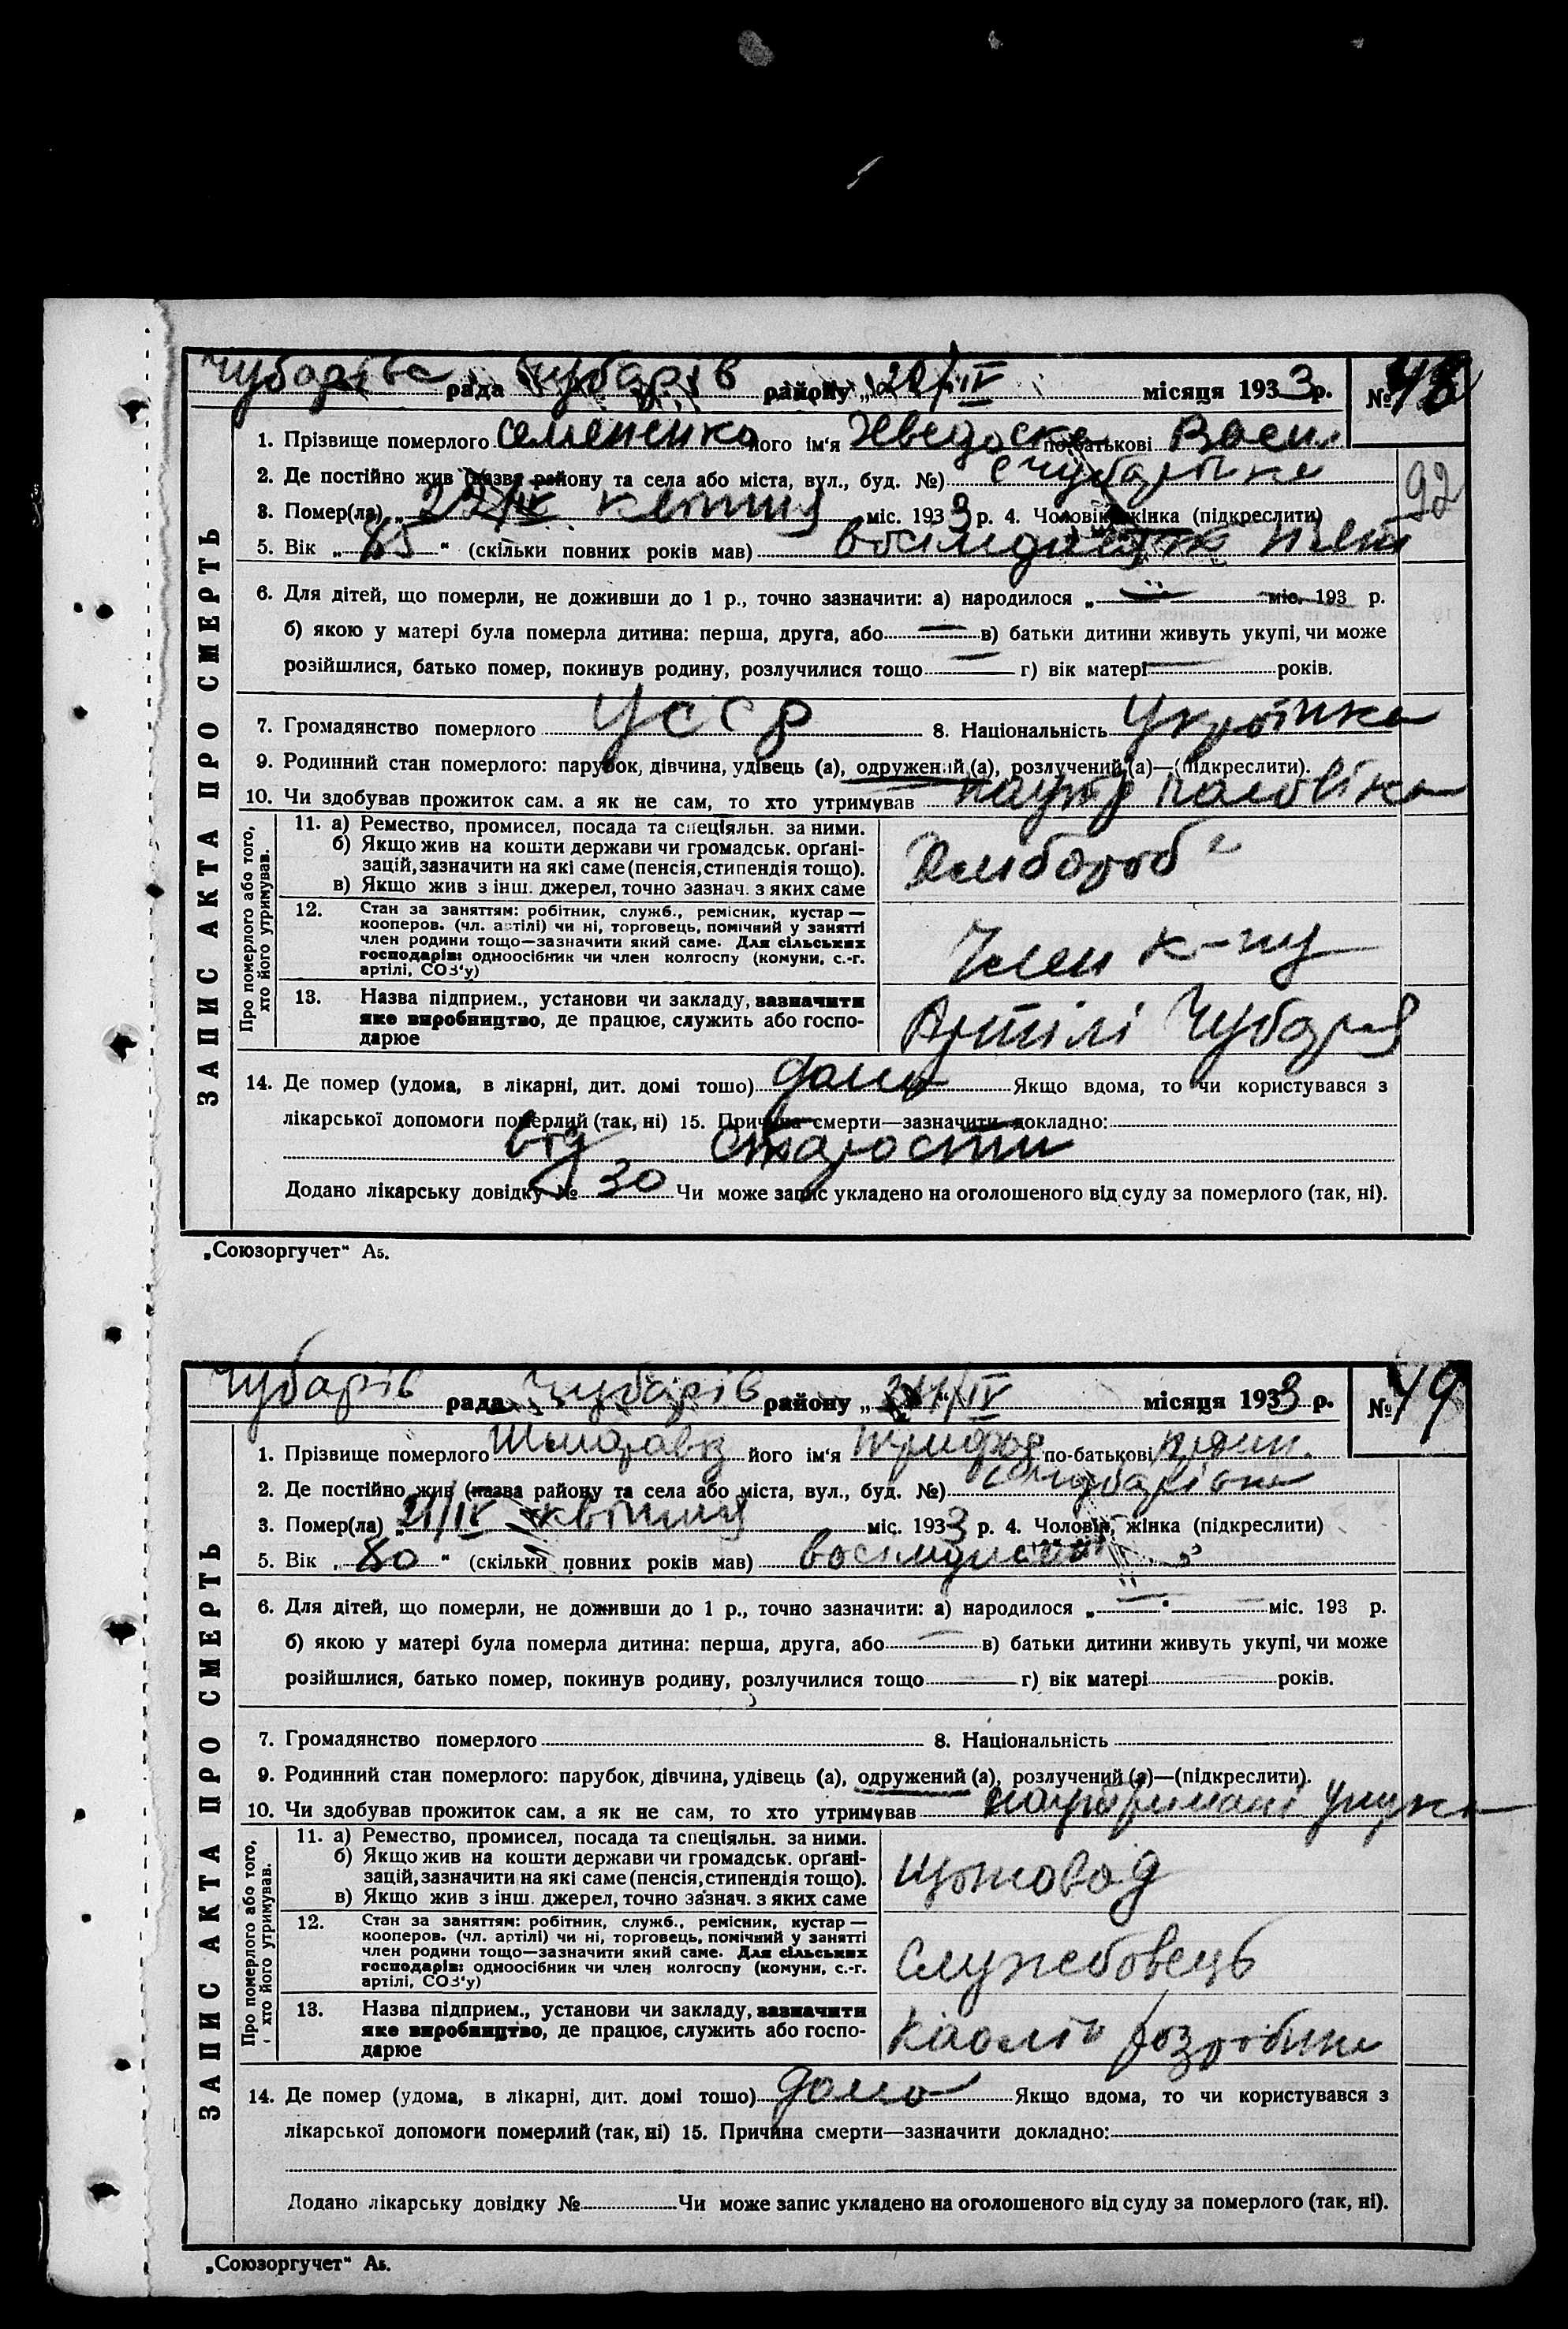 Чубарівс рада Чубарів району „ 22/IV місяця 1933 р. № 48
1. Прізвище померлого Семененко його ім'я по-батькові Васил
2. Де постійно жив (назва району та села або міста, вул., буд. №) с Чубарівка
92
3. Помер(ла) „ 22/IV квітня міс. 1933 р. 4. Чоловік, жінка (підкреслити)
5. Вік „ 85 “ (скільки повних років мав) вісімдесят пять
6. Для дітей, що померли, не доживши до 1 р., точно зазначити: а) народилося „ — “ міс. 193 р.
б) якою у матері була померла дитина: перша, друга, або — в) батьки дитини живуть укупі, чи може
розійшлися, батько помер, покинув родину, розлучилися тощо — г) вік матері — років.
7. Громадянство померлого УССР 8. Національність Українка
9. Родинний стан померлого: парубок, дівчина, удівець (а), одружений (а), розлучений (а)—(підкреслити).
10. Чи здобував прожиток сам, а як не сам, то хто утримував чоловіка
ЗАПИС АКТА ПРО СМЕРТЬ
Про померлого або того, хто його утримував.
11. а) Ремество, промисел, посада та спеціяльн. за ними.
б) Якщо жив на кошти держави чи громадськ. орґані-
зацій, зазначити на які саме (пенсія, стипендія тощо).
в) Якщо жив з інш. джерел, точно зазнач. з яких саме
Хлібороб
12. Стан за заняттям: робітник, служб., ремісник, кустар—
кооперов. (чл. артілі) чи ні, торговець, помічний у занятті
член родини тощо—зазначити який саме. Для сільських
господарів: одноосібник чи член колгоспу (комуни, с.-г.
артілі, СОЗ'у)
Член к-пу
13. Назва підприєм., установи чи закладу, зазначити
яке виробництво, де працює, служить або госпо-
дарює
Артілі Чубаря
14. Де помер (удома, в лікарні, дит. домі тощо) дома Якщо вдома, то чи користувався з
лікарської допомоги померлий (так, ні) 15. Причина смерти—зазначити докладно:
від старости
Додано лікарську довідку № 30 Чи може запис укладено на оголошеного від суду за померлого (так, ні).
„Союзоргучет“ А5.
Чубарів рада Чубарів району „ 21/IV місяця 1933 р. № 49
1. Прізвище померлого його ім'я Трифон по-батькові
2. Де постійно жив (назва району та села або міста, вул., буд. №) с Чубарівка
3. Помер(ла) „ 21/IV квітня міс. 1933 р. 4. Чоловік, жінка (підкреслити)
5. Вік „ 80 “ (скільки повних років мав) вісімдисят
6. Для дітей, що померли, не доживши до 1 р., точно зазначити: а) народилося „ — “ міс. 193 р.
б) якою у матері була померла дитина: перша, друга, або — в) батьки дитини живуть укупі, чи може
розійшлися, батько помер, покинув родину, розлучилися тощо — г) вік матері років.
7. Громадянство померлого 8. Національність
9. Родинний стан померлого: парубок, дівчина, удівець (а), одружений (а), розлучений (а)—(підкреслити).
10. Чи здобував прожиток сам, а як не сам, то хто утримував
ЗАПИС АКТА ПРО СМЕРТЬ
Про померлого або того, хто його утримував.
11. а) Ремество, промисел, посада та спеціяльн. за ними.
б) Якщо жив на кошти держави чи громадськ. орґані-
зацій, зазначити на які саме (пенсія, стипендія тощо).
в) Якщо жив з інш. джерел, точно зазнач. з яких саме
12. Стан за заняттям: робітник, служб., ремісник, кустар—
кооперов. (чл. артілі) чи ні, торговець, помічний у занятті
член родини тощо—зазначити який саме. Для сільських
господарів: одноосібник чи член колгоспу (комуни, с.-г.
артілі, СОЗ'у)
Служебовець
13. Назва підприєм., установи чи закладу, зазначити
яке виробництво, де працює, служить або госпо-
дарює
Каолін розробики
14. Де помер (удома, в лікарні, дит. домі тощо) дома Якщо вдома, то чи користувався з
лікарської допомоги померлий (так, ні) 15. Причина смерти—зазначити докладно:
Додано лікарську довідку № Чи може запис укладено на оголошеного від суду за померлого (так, ні).
„Союзоргучет“ А5.